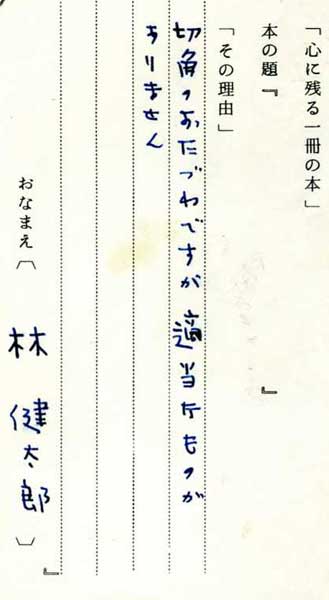 「心に残る一冊の本」
本の題『　』
「その理由」
切角のおたづねですが適当なものが
ありません
おなまえ〔林 健太郎〕